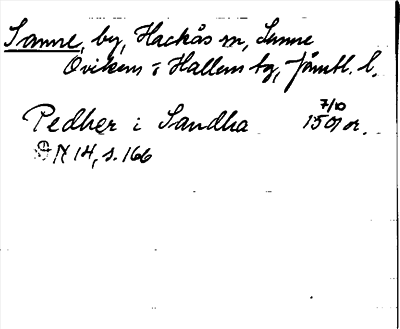 Sanne, by, Hackås sn, Sunne
Ovikens o Hallens tg, Jämtl. l.
Pedher i Sandha 7/10 1501 or.
N 14, s. 166